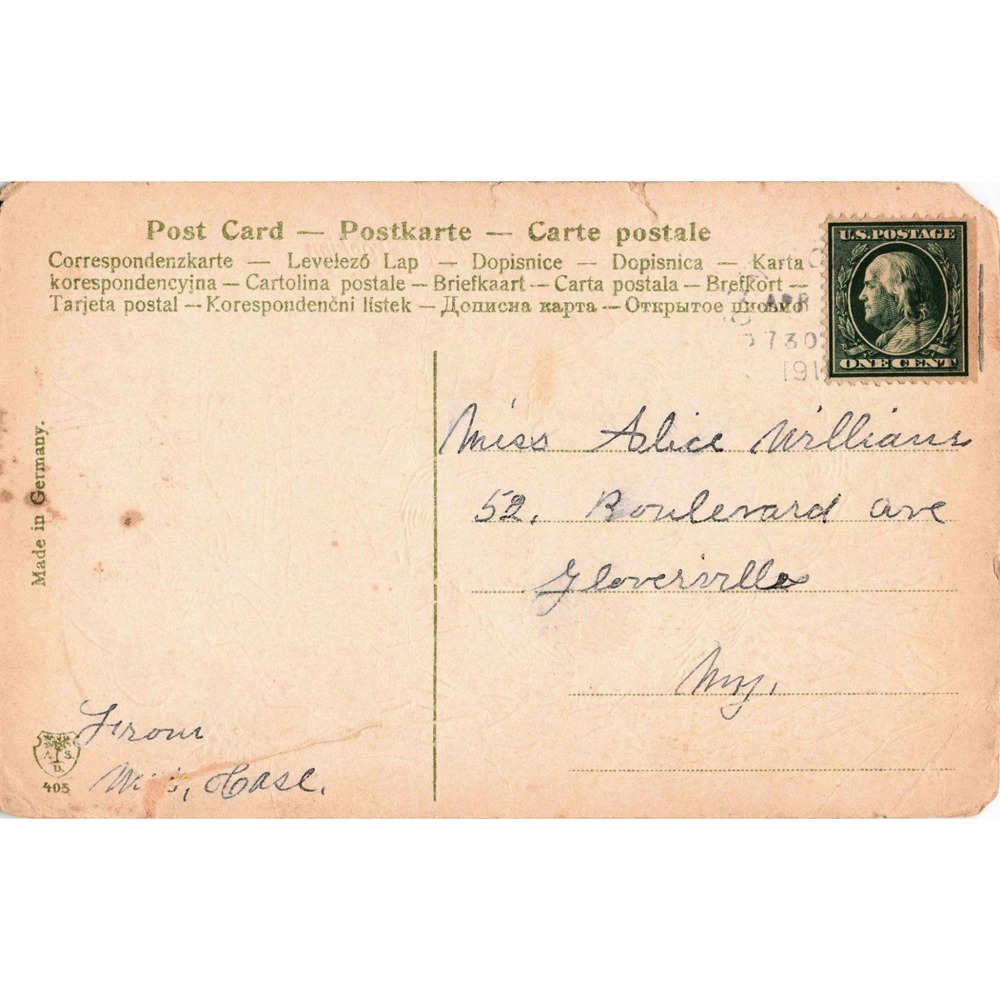 Post Card — Postkarte — Carte postale
Correspondenzkarte — Levelező Lap — Dopisnice — Dopisnica — Karta
korespondencyjna — Cartolina postale — Briefkaart — Carta postala — Brefkort —
Tarjeta postal — Korespondenčni listek — Дописна карта — Открытое письмо
U.S. POSTAGE
ONE CENT
APR
730
191
Miss Alice Williams
52. Boulevard ave
Gloversville
N.y.
Made in Germany.
From
Case.
405